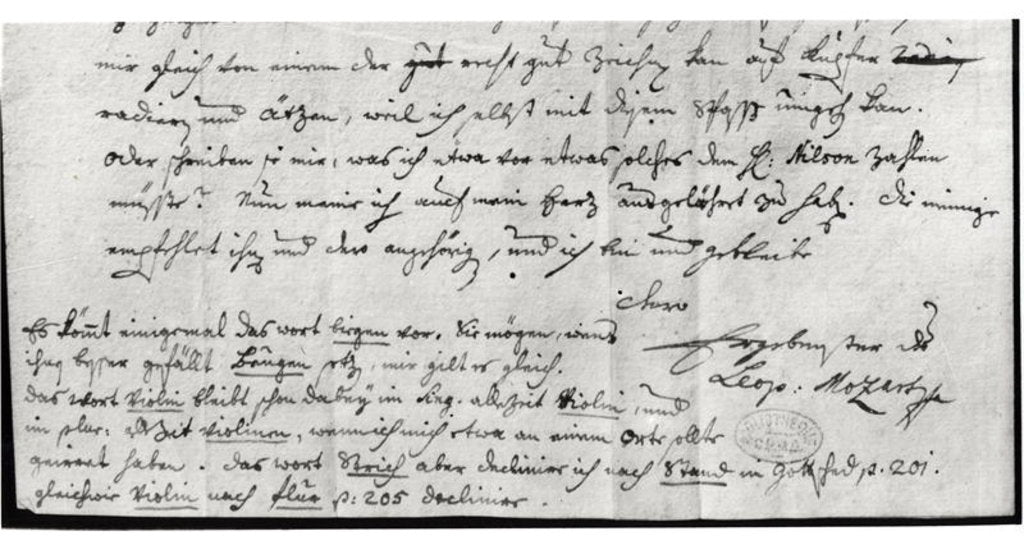 mir gleich von einem der gut recht gut Zeichnen kan auf Kupfer
radieren und Ätzen, weil ich selbst mit diesem Spass umgehen kan.
oder schreiben sie mir, was ich etwa vor etwas solches dem H: Nilson zahlen
müsste? Nun meine ich auch mein Hertz ausgelährt zu haben. die meinige
empfehlet ihnen und dero angehörigen, und ich bin und geblieben
dero
Ergebenster
Leop: Mozart
Es kömmt einigemal das wort biegen vor. Sie mögen, wenns
ihnen besser gefällt Beugen setzen, mir gilt es gleich.
das wort Violin bleibt schon dabey im Sing. allezeit Violin, und
im plur: allzeit Violinen, wenn ich mich etwa an einem Orte sollte
geirret haben. das wort Strich aber declinire ich nach Stand im Gottsched p. 201.
gleichwie Violin nach flur p: 205 declinire.